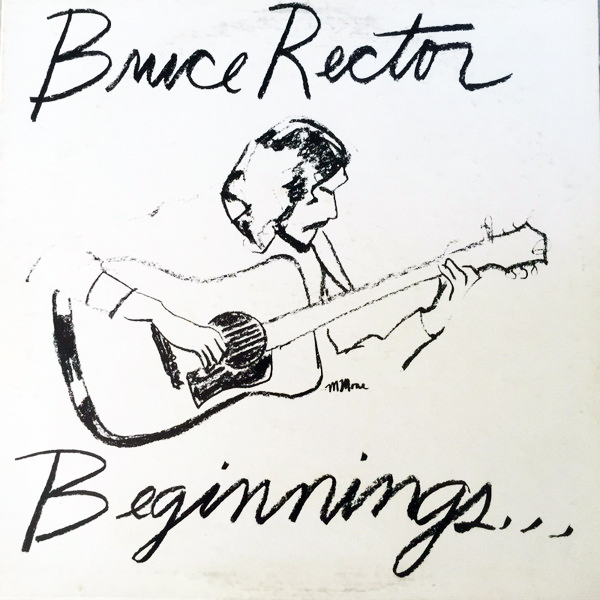 Bruce Rector
Beginnings...